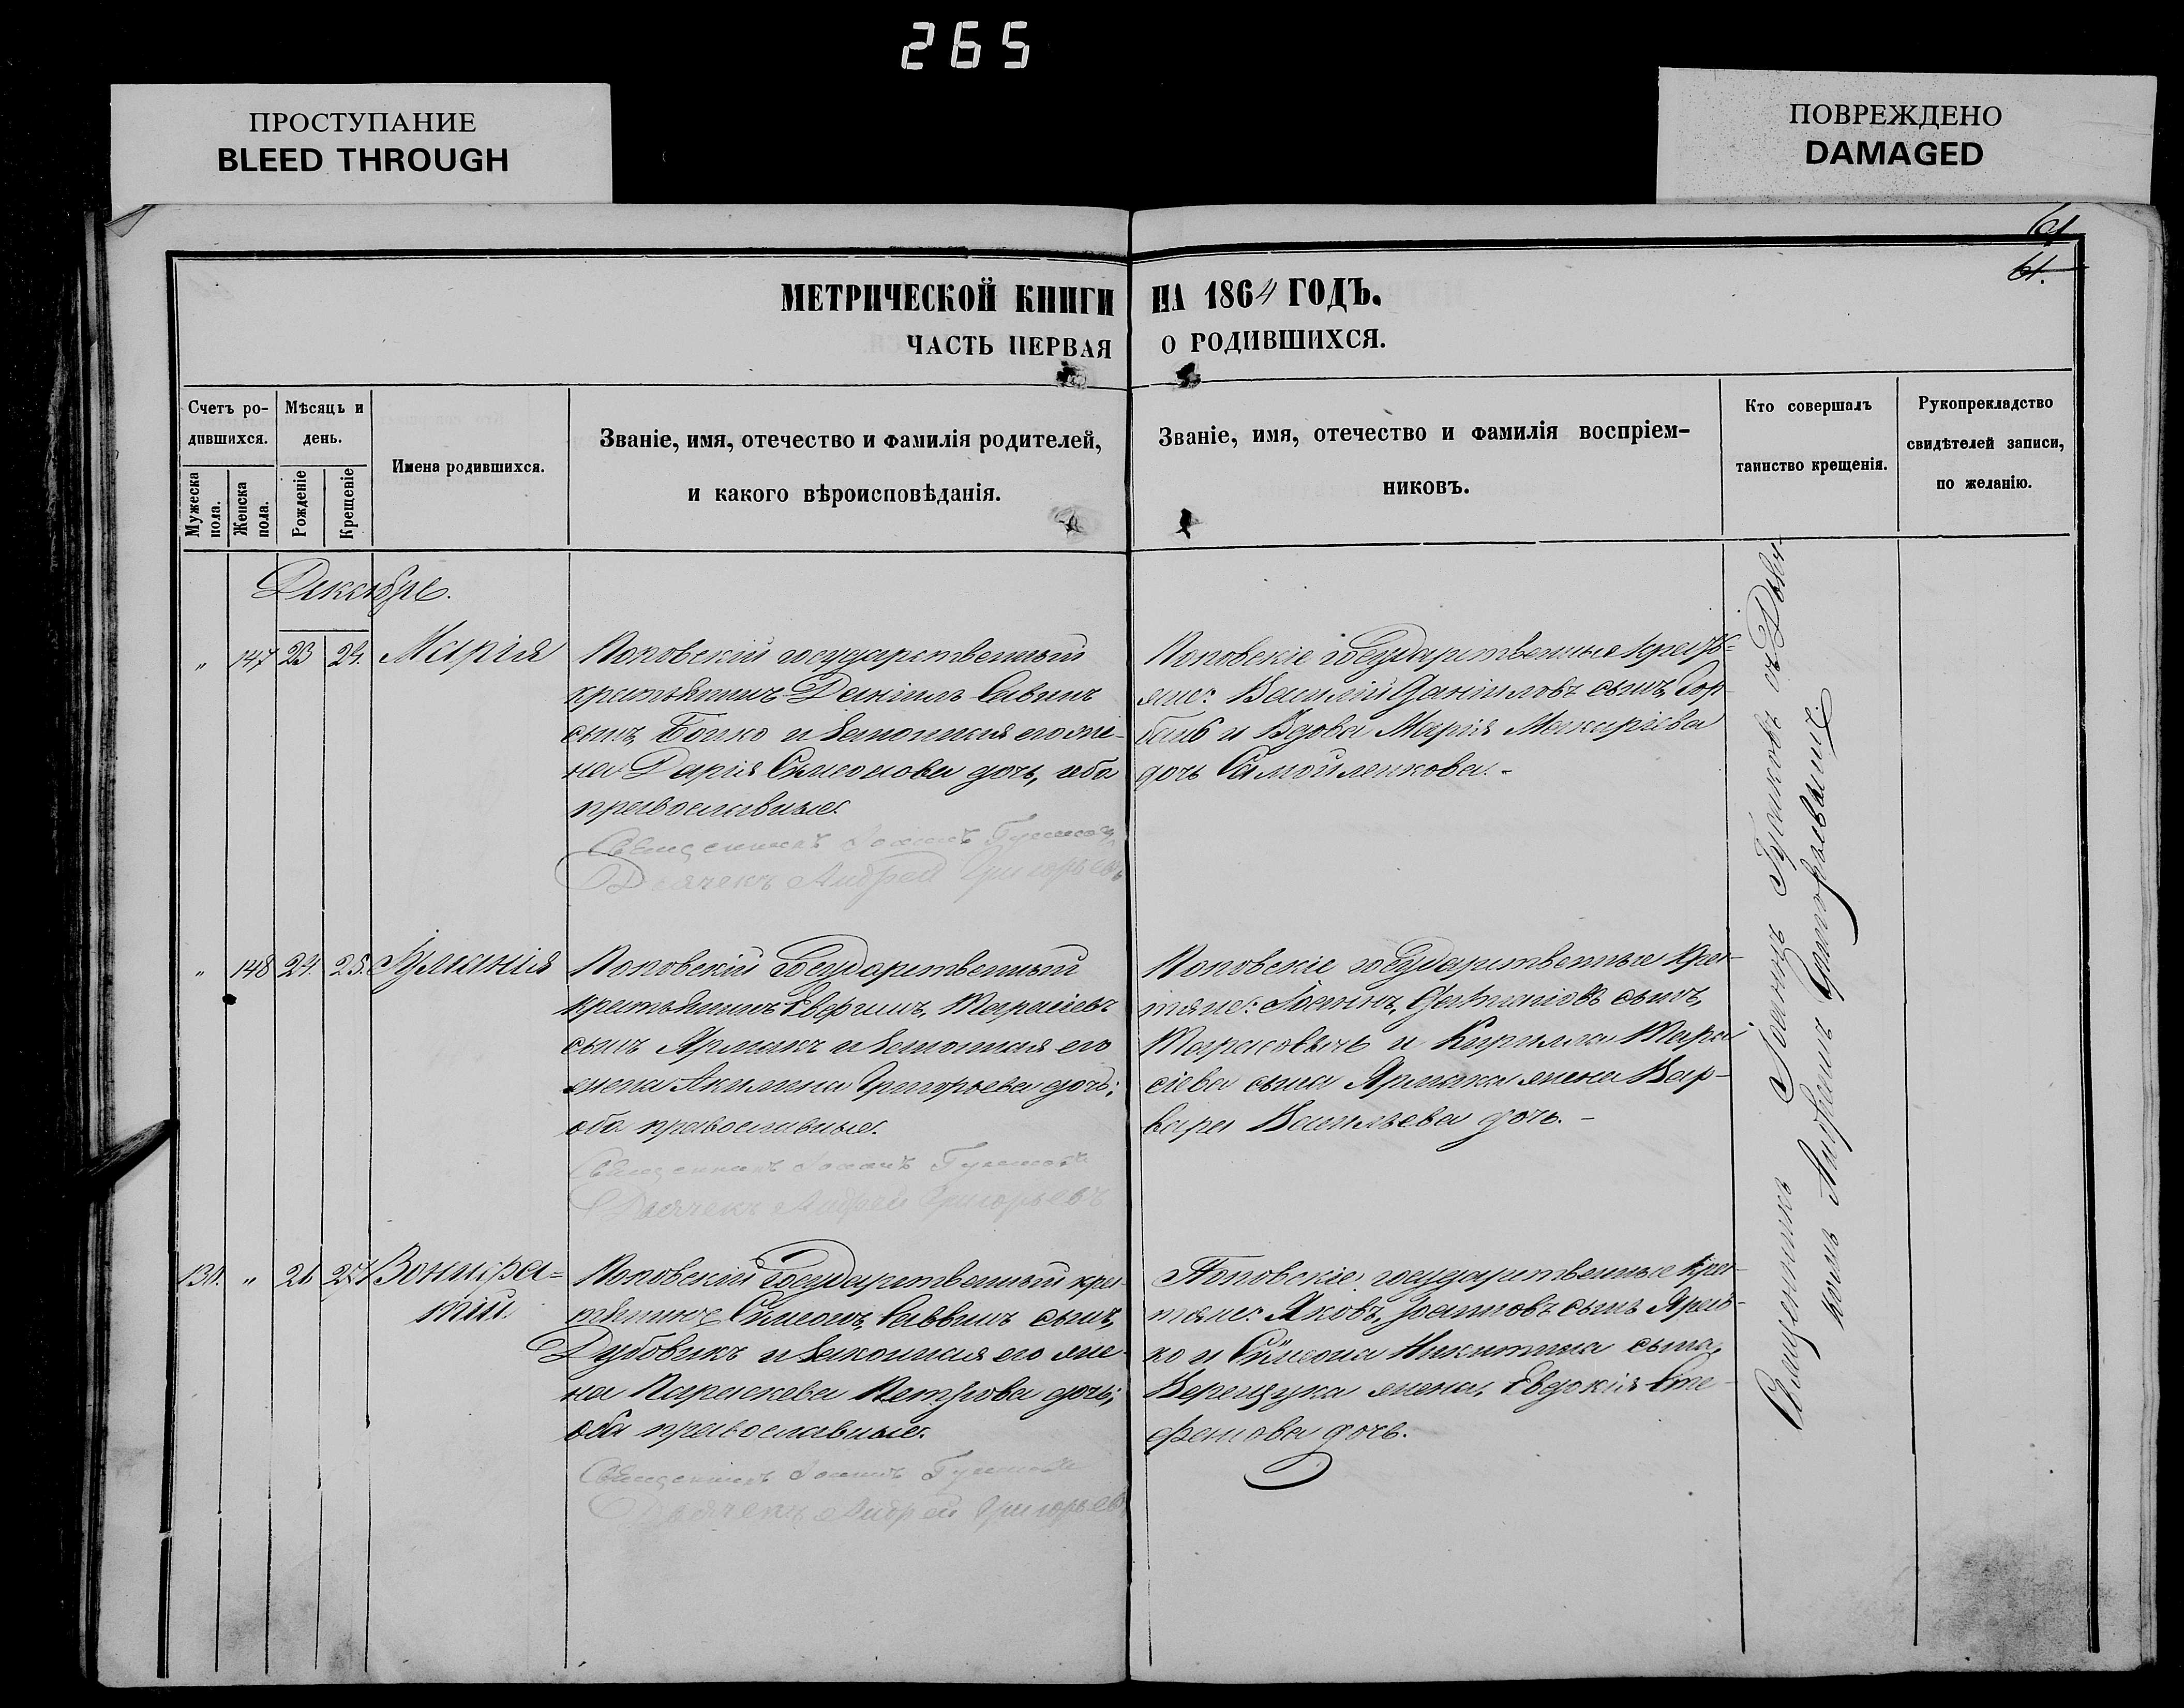 265
ПРОСТУПАНИЕ
BLEED THROUGH
ПОВРЕЖДЕНО
DAMAGED
61
61.
МЕТРИЧЕСКОЙ КНИГИ НА 1864 ГОДЪ.
ЧАСТЬ ПЕРВАЯ О РОДИВШИХСЯ.
Счетъ ро-
дившихся.
Мужеска
пола.
Женска
пола.
Мѣсяць и
день.
Рожденіе
Крещеніе
Имена родившихся.
Званіе, имя, отечество и фамилія родителей,
и какого вѣроисповѣданія.
Званіе, имя, отечество и фамилія воспріем-
никовъ.
Кто совершалъ
таинство крещенія.
Рукоприкладство
свидѣтелей записи,
по желанію.
Декабрь.
„ 147 23 24. Марія
Поповскій государственный
крестьянинъ Даніилъ Савинъ
сынъ Бойко и законная его же-
на Дарія Симеонова дочь, оба
православные.
Священникъ Іоаннъ
Дьячекъ Андрей Григорьевъ
Поповскіе государственные кресть-
яне: Василій Даніиловъ сынъ Гор-
бань и вдова Марія Макаріева
дочь Самойленкова.-
„ 148 24. 25. Іуліанія
Поповскій Государственный
крестьянинъ Тарасіевъ
сынъ Ярмакъ и законная его
жена Акилина Григорьева дочь;
оба православные.
Священникъ Іоаннъ
Дьячекъ Андрей Григорьевъ
Поповскіе государственные кре-
стяне: Іоаннъ сынъ
и Кирилла Тара-
сіева сына Ярмака жена Вар-
вара Васильева дочь.-
130. „ 26 27. Вонифа=
тій.
Поповскій Государственный кре-
стянинъ Симеонъ Саввинъ сынъ
Дубовикъ и законная его же-
на Параскева Петрова дочь;
оба православные.
Священникъ Іоаннъ
Дьячекъ Андрей Григорьевъ
Поповскіе государственные кре-
стяне: Яковъ Іоанновъ сынъ
ко и Симеона Никитина сына
Верещука жена, Евдокія Сте-
фанова дочь.
Священникъ Іоаннъ съ Дьяч-
комъ Андреемъ Григорьевымъ.